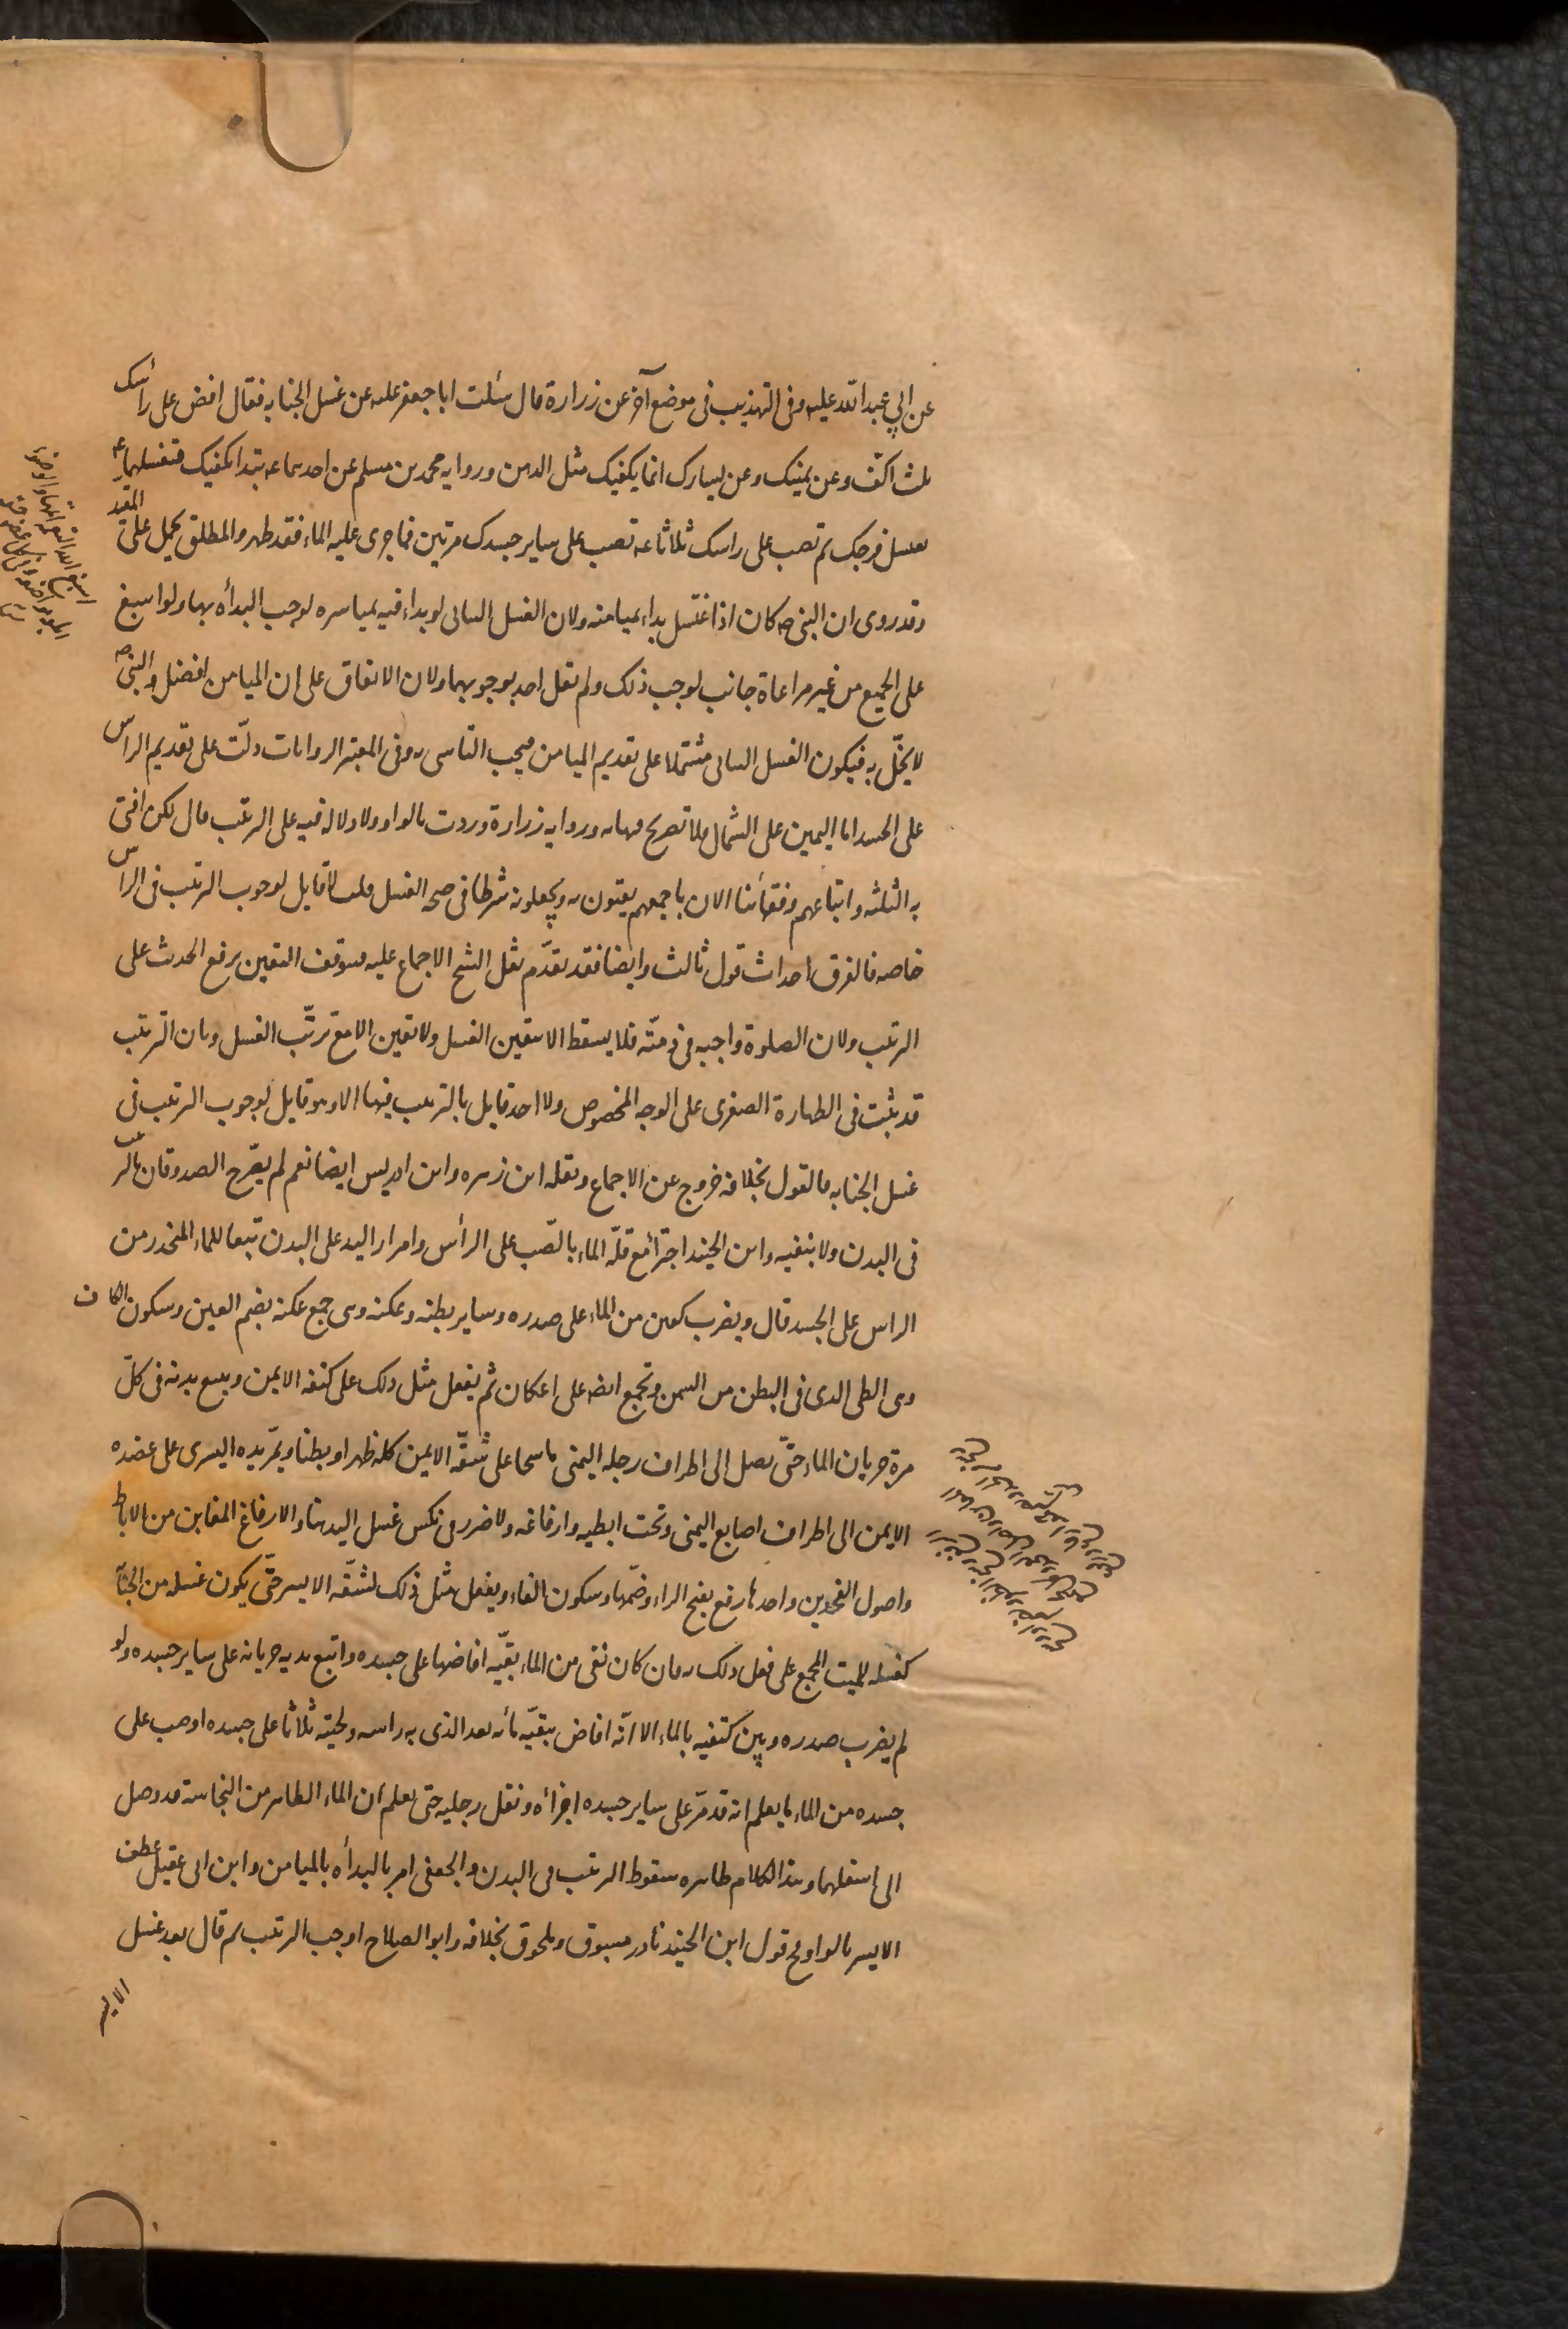 عن ابي عبد الله عليه وفى التهذيب فى موضع آخر عن زرارة قال سئلت ابا جعفر عليه عن غسل الجنابه فقال افض على رأسك
ثلث اكفّ وعن يمينك وعن يسارك انما يكفيك مثل الدهن وروايه محمد بن مسلم عن احدهما ع تبتدا بكفيك فتغسلهما ثم
تغسل فرجك ثم تصب على راسك ثلاثا ثم تصب على ساير جسدك مرتين فما جرى عليه الماء فقد طهر والمطلق يحمل على المقيد
وقد روى ان النبى ص كان اذا اغتسل بداء بميامنه ولان الغسل البيانى لو بداء فيه بمياسره لوجب البدأة بها ولو اسبغ
على الجميع من غير مراعاة جانب لوجب ذلك ولم يقل احد بوجوبهما ولان الاتفاق على ان الميامن افضل والنبى ص
لا يخلّ به فيكون الغسل البيانى مشتملا على تقديم الميامن فيجب التاسى به وفى المعتبر الروايات دلّت على تقديم الراس
على الجسد اما اليمين على الشمال فلا تصريح فيها به وروايه زرارة وردت بالواو ولا دلاله فيه على الترتيب قال لكن افتى
به الثلثه واتباعهم وفقهائنا الان باجمعهم يفتون به ويجعلونه شرطا فى صحه الغسل قلت لا قايل لوجوب الترتيب فى الراس
خاصه فالفرق احداث قول ثالث وايضا فقد تقدّم نقل الشيخ الاجماع عليه فتوقف اليقين برفع الحدث على
الترتيب ولان الصلوة واجبه فى ذمّته فلا يسقط الا بيقين الغسل ولا يقين الا مع ترتّب الغسل وبان الترتيب
قد ثبت فى الطهارة الصغرى على الوجه المخصوص ولا احد قايل بالترتيب فيها الا وهو قايل لوجوب الترتيب فى
غسل الجنابه فالقول بخلافه خروج عن الاجماع ونقله ابن زهره وابن ادريس ايضا نعم لم يصرّح الصدوقان بالترتيب
فى البدن ولا بنفيه وابن الجنيد اجتزأ مع قلّة الماء بالصّب على الرأس وامرار اليد على البدن تبعا للماء المنحدر من
الراس على الجسد قال ويضرب كفين من الماء على صدره وساير بطنه وعكنه وهى جمع عكنه بضم العين وسكون الكاف
وهى الطى الذى فى البطن من السمن وتجمع ايضه على اعكان ثم يفعل مثل ذلك على كتفه الايمن ويتبع يديه فى كلّ
مرة جريان الماء حتّى يصل الى اطراف رجله اليمنى ماسحا على شقّه الايمن كله ظهرا وبطنا ويمرّ يده اليسرى على عضده
الايمن الى اطراف اصابع اليمنى وتحت ابطيه وارفاغه ولا ضرر فى نكس غسل اليد هنا والارفاغ المغابن من الاباط
واصول الفخذين واحدها رفغ بفتح الراء وضمّها وسكون الفاء ويفعل مثل ذلك لشقّه الايسر حتّى يكون غسله من الجنابة
كغسله للميت المجمع على فعل ذلك به فان كان بقى من الماء بقيّه افاضها على جسده واتبع يديه جريانه على ساير جسده ولو
لم يضرب صدره وبين كتفيه بالماء الا انّه افاض ببقيّة مائه بعد الذى به راسه ولحيته ثلاثا على جسده او صب على
جسده من الماء ما يعلم انه قد مرّ على ساير جسده اجزأه ونقل رجليه حتى يعلم ان الماء الطاهر من النجاسة قد وصل
الى اسفلهما وهذا الكلام ظاهره سقوط الترتيب فى البدن والجعفى امر بالبدأة بالميامن وابن ابى عقيل عطف
الايسر بالواو وقول ابن الجنيد نادر مسبوق وملحوق بخلافه وابو الصلاح اوجب الترتيب ثم قال بعد غسل
الايسر